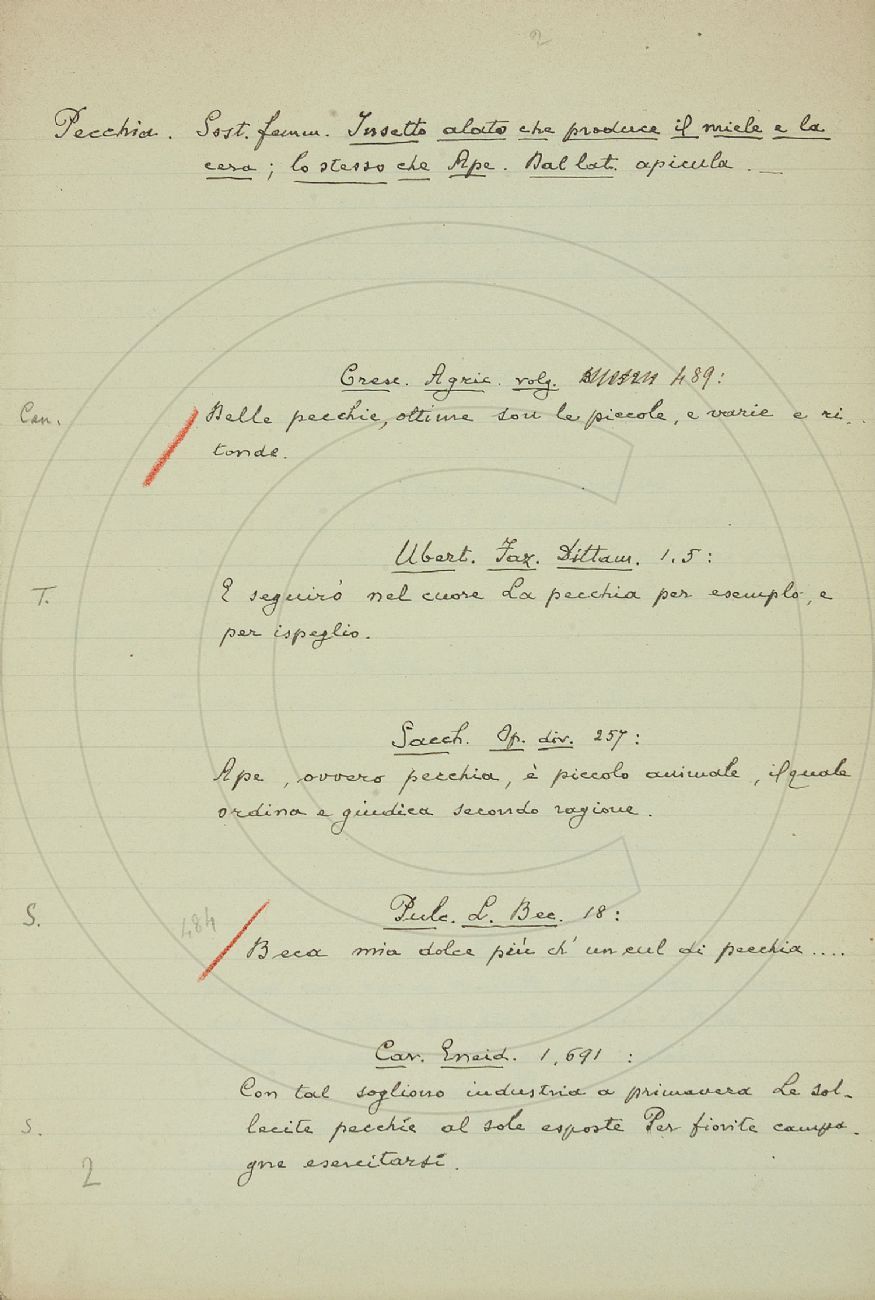 2
Pecchia. Sost. femm. Insetto alato che produce il miele e la
cera; lo stesso che Ape. Dal lat. apicula. _
Cresc. Agric. volg. 489:
Can.
Delle pecchie, ottime son le piccole, e varie e ri-
tonde.
Ubert. Faz. Dittam. 1.5:
T.
E seguirò nel cuore La pecchia per esemplo, e
per ispeglio.
Sacch. Op. div. 257:
Ape, ovvero pecchia, è piccolo animale, il quale
ordina e giudica secondo ragione.
S.
484
Pulc. L. Bec. 18:
Beca mia dolce più ch' un cul di pecchia....
Car. Eneid. 1,691:
Con tal sogliono industria a primavera Le sol-
S.
lecite pecchie al sole esposte Per fiorite campa-
gne esercitarsi.
2